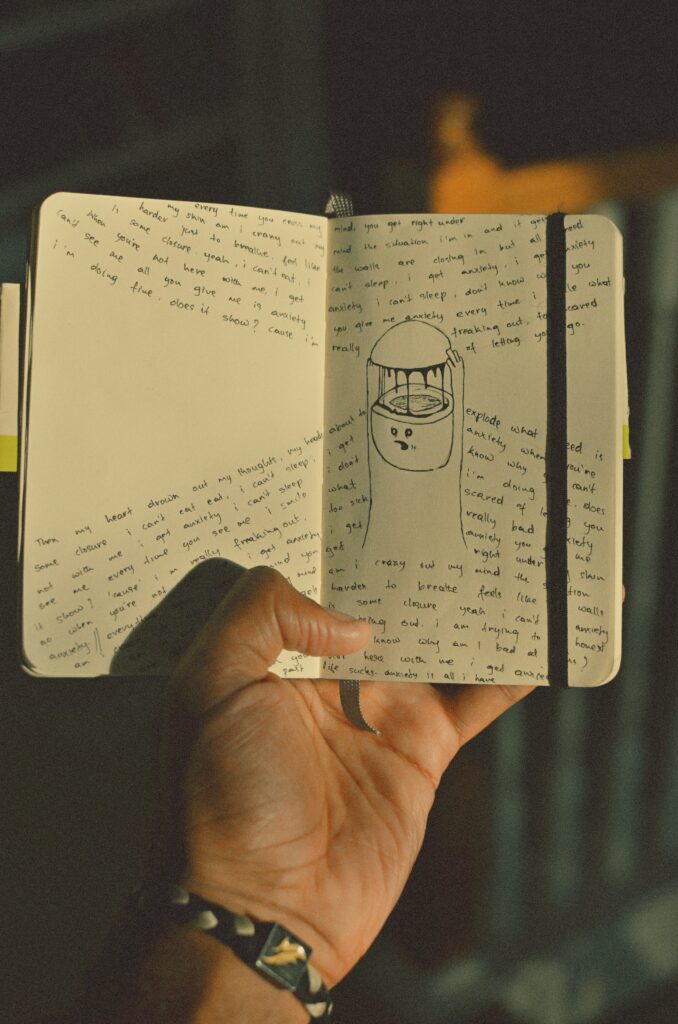 every time you cross my
my skin am i crazy out my
is harder just to breathe, feel like
is some closure, yeah, i can't eat, i
can't when you're not here with me i get
see me all you give me is anxiety
i'm doing fine. does it show? cause i'm
about to
Then my heart drown out my thoughts, my head
some closure i can't eat, i can't sleep,
not with me i get anxiety i can't sleep
see me every time you see me i smile
it show? 'cause i'm really freaking out,
so when you're not i get anxiety
anxiety!! every
am
mind, you get right under
mind the situation i'm in and it gets
the walls are closing in but all need
can't sleep, i get anxiety, i get anxiety
anxiety i can't sleep, don't know you
you give me anxiety every time i what
really freaking out, too scared
of letting you go.
explode what need is
i get anxiety when you're
i don't know why can't
what i'm doing does
too sick scared of you
i get really bad anxiety
get anxiety you me
right under skin
am i crazy out my mind the
harder to breathe feels like walls
is some closure yeah i can't
out. i am trying to anxiety
know why am i bad at honest
here with me i get
past life sucks. anxiety is all i have